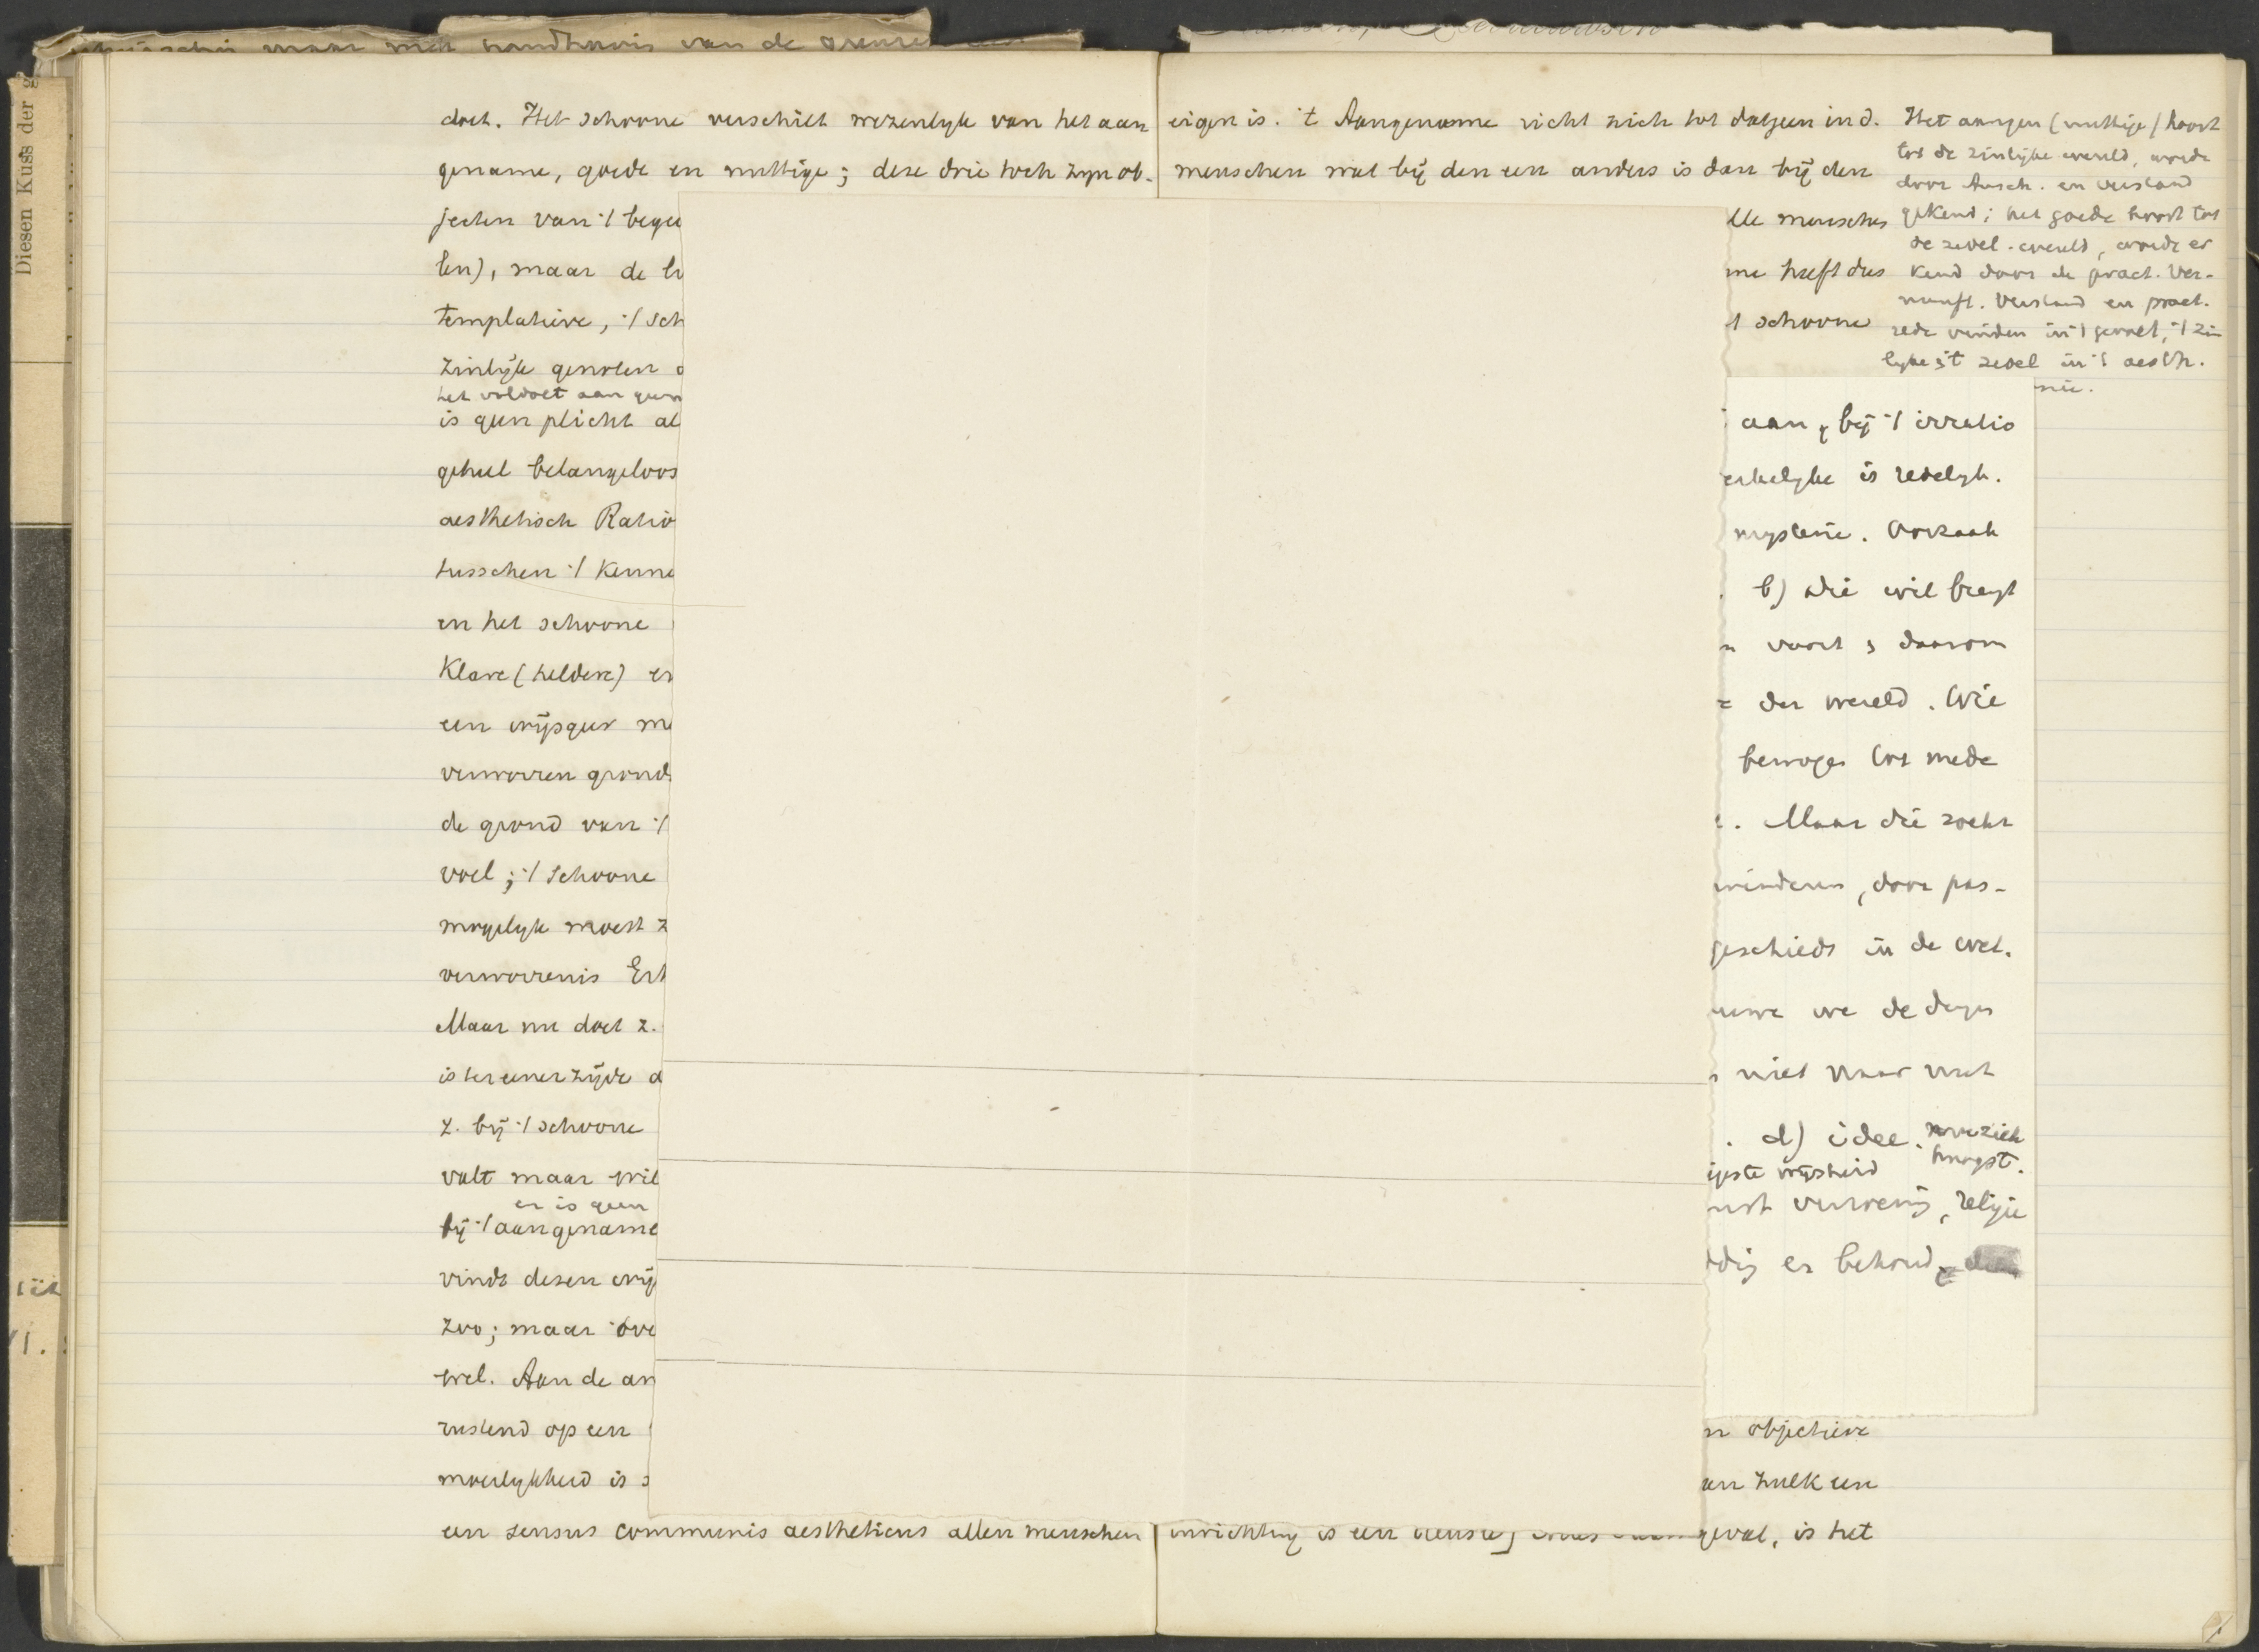 maar met handhavin van de grenze
Diesen Kuss der g
doet. Het schoone verschilt wezenlyk van het aan
gename, goede en nuttige; deze drie toch zyn ob-
jecten van 't bege
len), maar de b
templatieve, 't sch
zinlijk genoten
het voldoet aan geen
is geen plicht al
geheel belangeloos
aesthetisch Ratio
tusschen 't kenne
en het schoone
klare (heldere) en
een wijsgeer m
verworren grond
de grond van 't
voel; 't schoone
mogelyk moest z
verworrenis Erk
Maar nu doet z.
is ter eener zijde
z. by 't schoone
valt maar wil
er is geen
bij 't aangename
vindt dezen wij
zoo; maar ove
wel. Aan de an
rustend op een
moeilykheid is
een sensus communis aestheticus allen menschen
eigen is. 't Aangename richt zich tot datgeen in d.
menschen wat bij den een anders is dan bij den
lle menschen
me heeft dus
t schoone
Het aangen (nuttige) hoort
tot de zinlijke wereld, worde
door Ansch. en verstand
gekend; het goede hoort tot
de zedel. wereld, worde er
kend door de pract. Ver-
nunft. Verstand en pract.
rede vinden in 't gevoel, 't zin
lyke zedel in 't aesth.
nie.
aan, bij 't irratio
erkelyke is redelyk.
mysterie. Oorzaak
b) die wil bregt
voort daarom
der wereld. Wie
bewogen tot mede
. Maar die zoekt
minderen, door pas-
geschiedt in de wet.
uwe we de dages
niet naar wat
. d) idee.
hoogst.
wijsheid
religie
dig er behoud
n objectieve
an zulk een
inrichting is een geval, is het